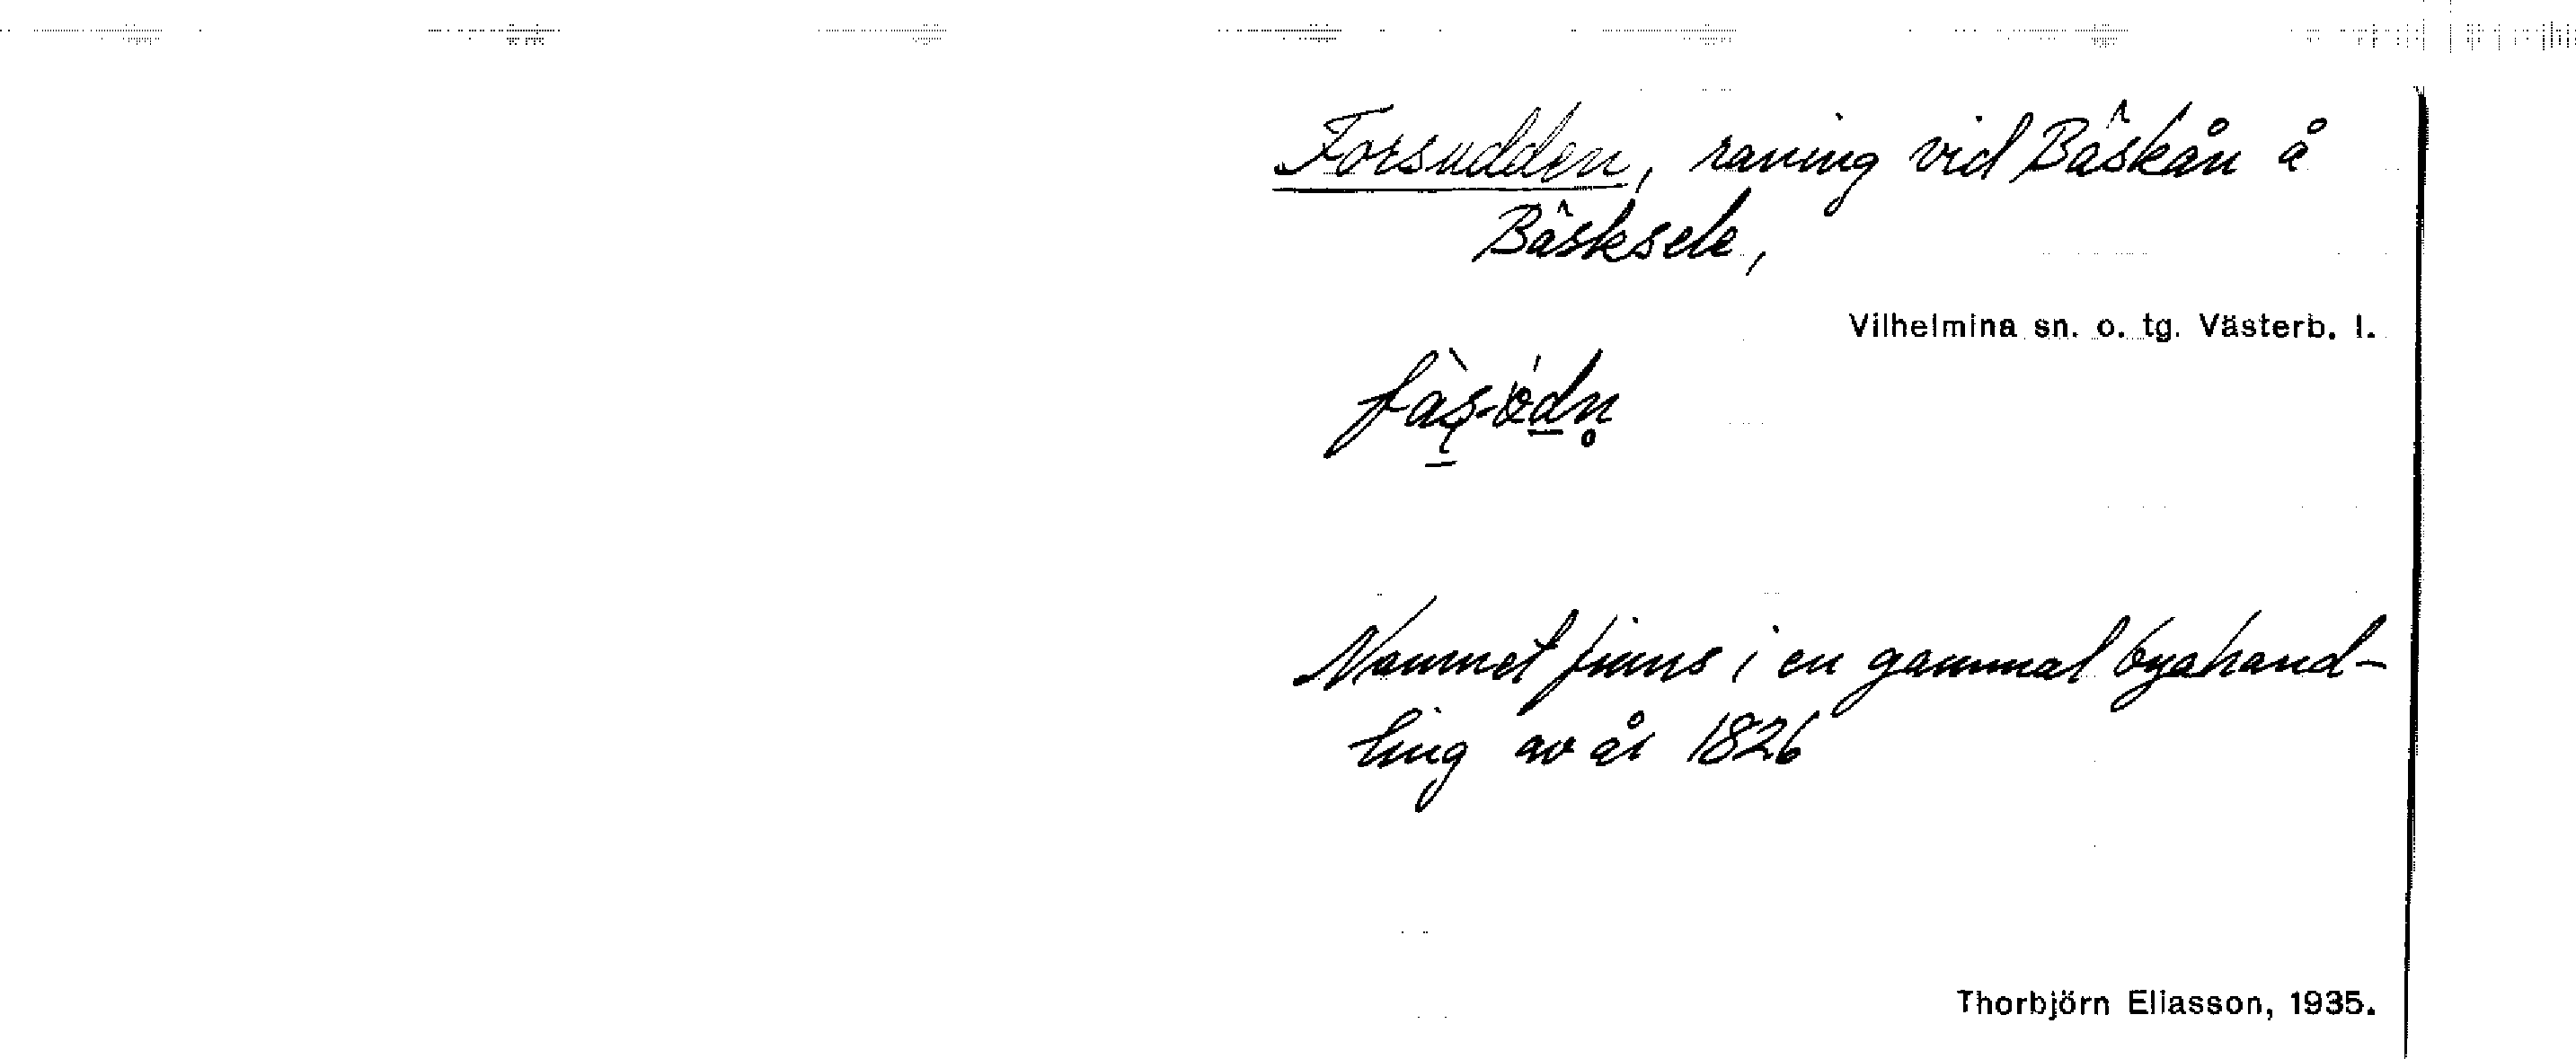 Forsudden, raning vid Bâskån å
Bâsksele,
Vilhelmina sn. o. tg. Västerb. l.
Namnet finns i en gammal byahand-
ling av år 1826
Thorbjörn Eliasson, 1935.